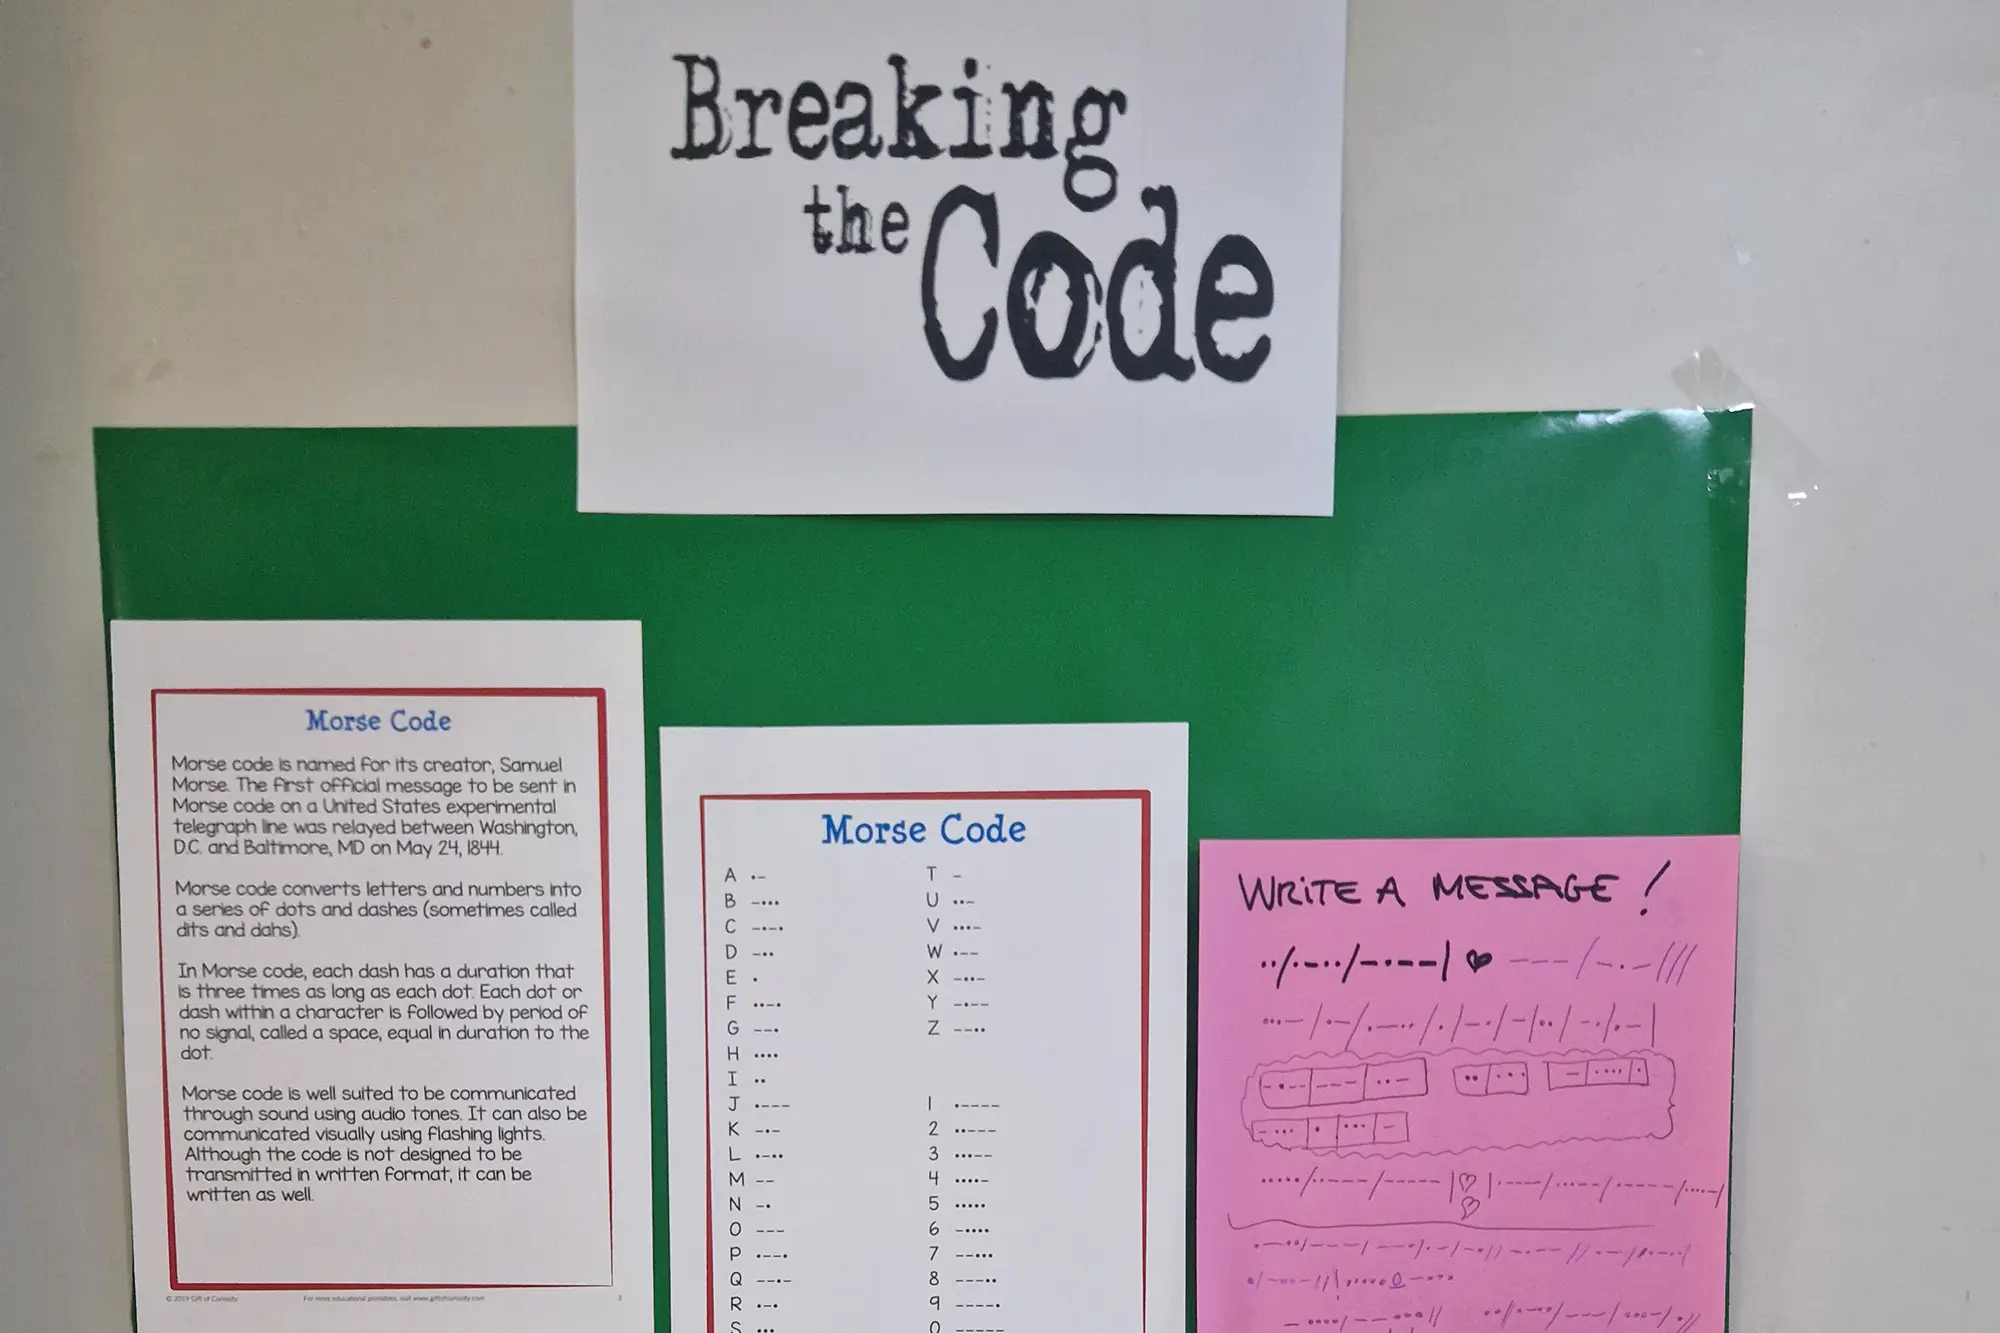 Breaking
the Code
Morse Code
Morse code is named for its creator, Samuel
Morse. The first official message to be sent in
Morse code on a United States experimental
telegraph line was relayed between Washington,
D.C. and Baltimore, MD on May 24, 1844.
Morse code converts letters and numbers into
a series of dots and dashes (sometimes called
dits and dahs).
In Morse code, each dash has a duration that
is three times as long as each dot. Each dot or
dash within a character is followed by period of
no signal, called a space, equal in duration to the
dot.
Morse code is well suited to be communicated
through sound using audio tones. It can also be
communicated visually using flashing lights.
Although the code is not designed to be
transmitted in written format, it can be
written as well.
© 2019 Gift of Curiosity
For more educational printables, visit www.giftofcuriosity.com
3
Morse Code
A •–
B –•••
C –•–•
D –••
E •
F ••–•
G ––•
H ••••
I ••
J •–––
K –•–
L •–••
M ––
N –•
O –––
P •––•
Q ––•–
R •–•
S •••
T –
U ••–
V •••–
W •––
X –••–
Y –•––
Z ––••
1 •––––
2 ••–––
3 •••––
4 ••••–
5 •••••
6 –••••
7 ––•••
8 –––••
9 ––––•
0 –––––
WRITE A MESSAGE!
••/•–••/–•––| ♥ –––/–•–///
–•––|–––|••– ••|••• –|••••|•
–•••|•|•••|–